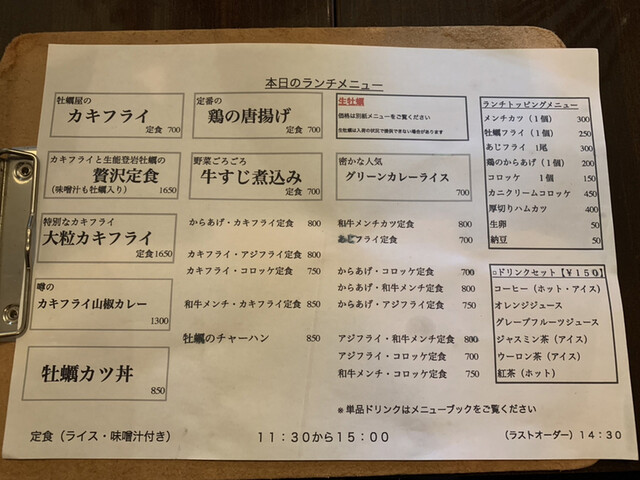 本日のランチメニュー
牡蠣屋の
カキフライ
定食 700
カキフライと生能登岩牡蠣の
贅沢定食
(味噌汁も牡蠣入り) 1650
特別なカキフライ
大粒カキフライ
定食1650
噂の
カキフライ山椒カレー
1300
牡蠣カツ丼
850
定番の
鶏の唐揚げ
定食 700
野菜ごろごろ
牛すじ煮込み
定食 700
からあげ・カキフライ定食 800
カキフライ・アジフライ定食 800
カキフライ・コロッケ定食 750
和牛メンチ・カキフライ定食 850
牡蠣のチャーハン 850
生牡蠣
価格は別紙メニューをご覧ください
生牡蠣は入荷の状況で提供できない場合があります
密かな人気
グリーンカレーライス
700
和牛メンチカツ定食 800
あじフライ定食 700
からあげ・コロッケ定食 700
からあげ・和牛メンチ定食 800
からあげ・アジフライ定食 750
アジフライ・和牛メンチ定食 800
アジフライ・コロッケ定食 700
和牛メンチ・コロッケ定食 750
※単品ドリンクはメニューブックをご覧ください
ランチトッピングメニュー
メンチカツ(1個) 300
牡蠣フライ(1個) 250
あじフライ 1尾 300
鶏のからあげ(1個) 200
コロッケ 1個 150
カニクリームコロッケ 450
厚切りハムカツ 400
生卵 50
納豆 50
□ドリンクセット【¥150】
コーヒー(ホット・アイス)
オレンジジュース
グレープフルーツジュース
ジャスミン茶(アイス)
ウーロン茶(アイス)
紅茶(ホット)
定食(ライス・味噌汁付き) 11:30から15:00 (ラストオーダー)14:30